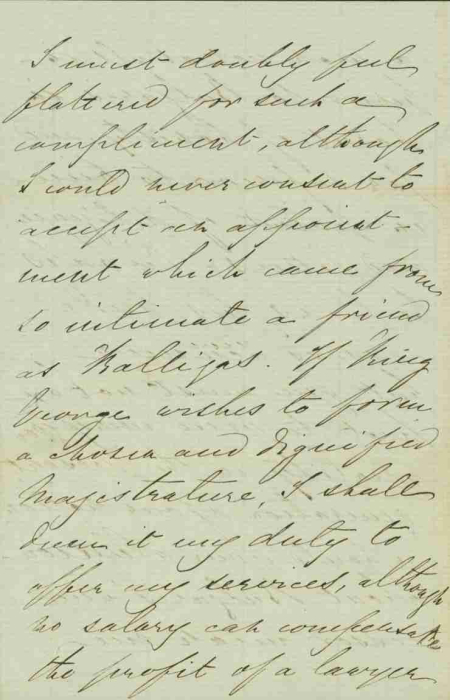 I must doubly feel
flattered for such a
compliment, although
I could never consent to
accept an appoint-
ment which came from
so intimate a friend
as Kalligas. If King
George wishes to form
a chosen and dignified
Magistrature, I shall
deem it my duty to
offer my services, although
no salary can compensate
the profit of a lawyer